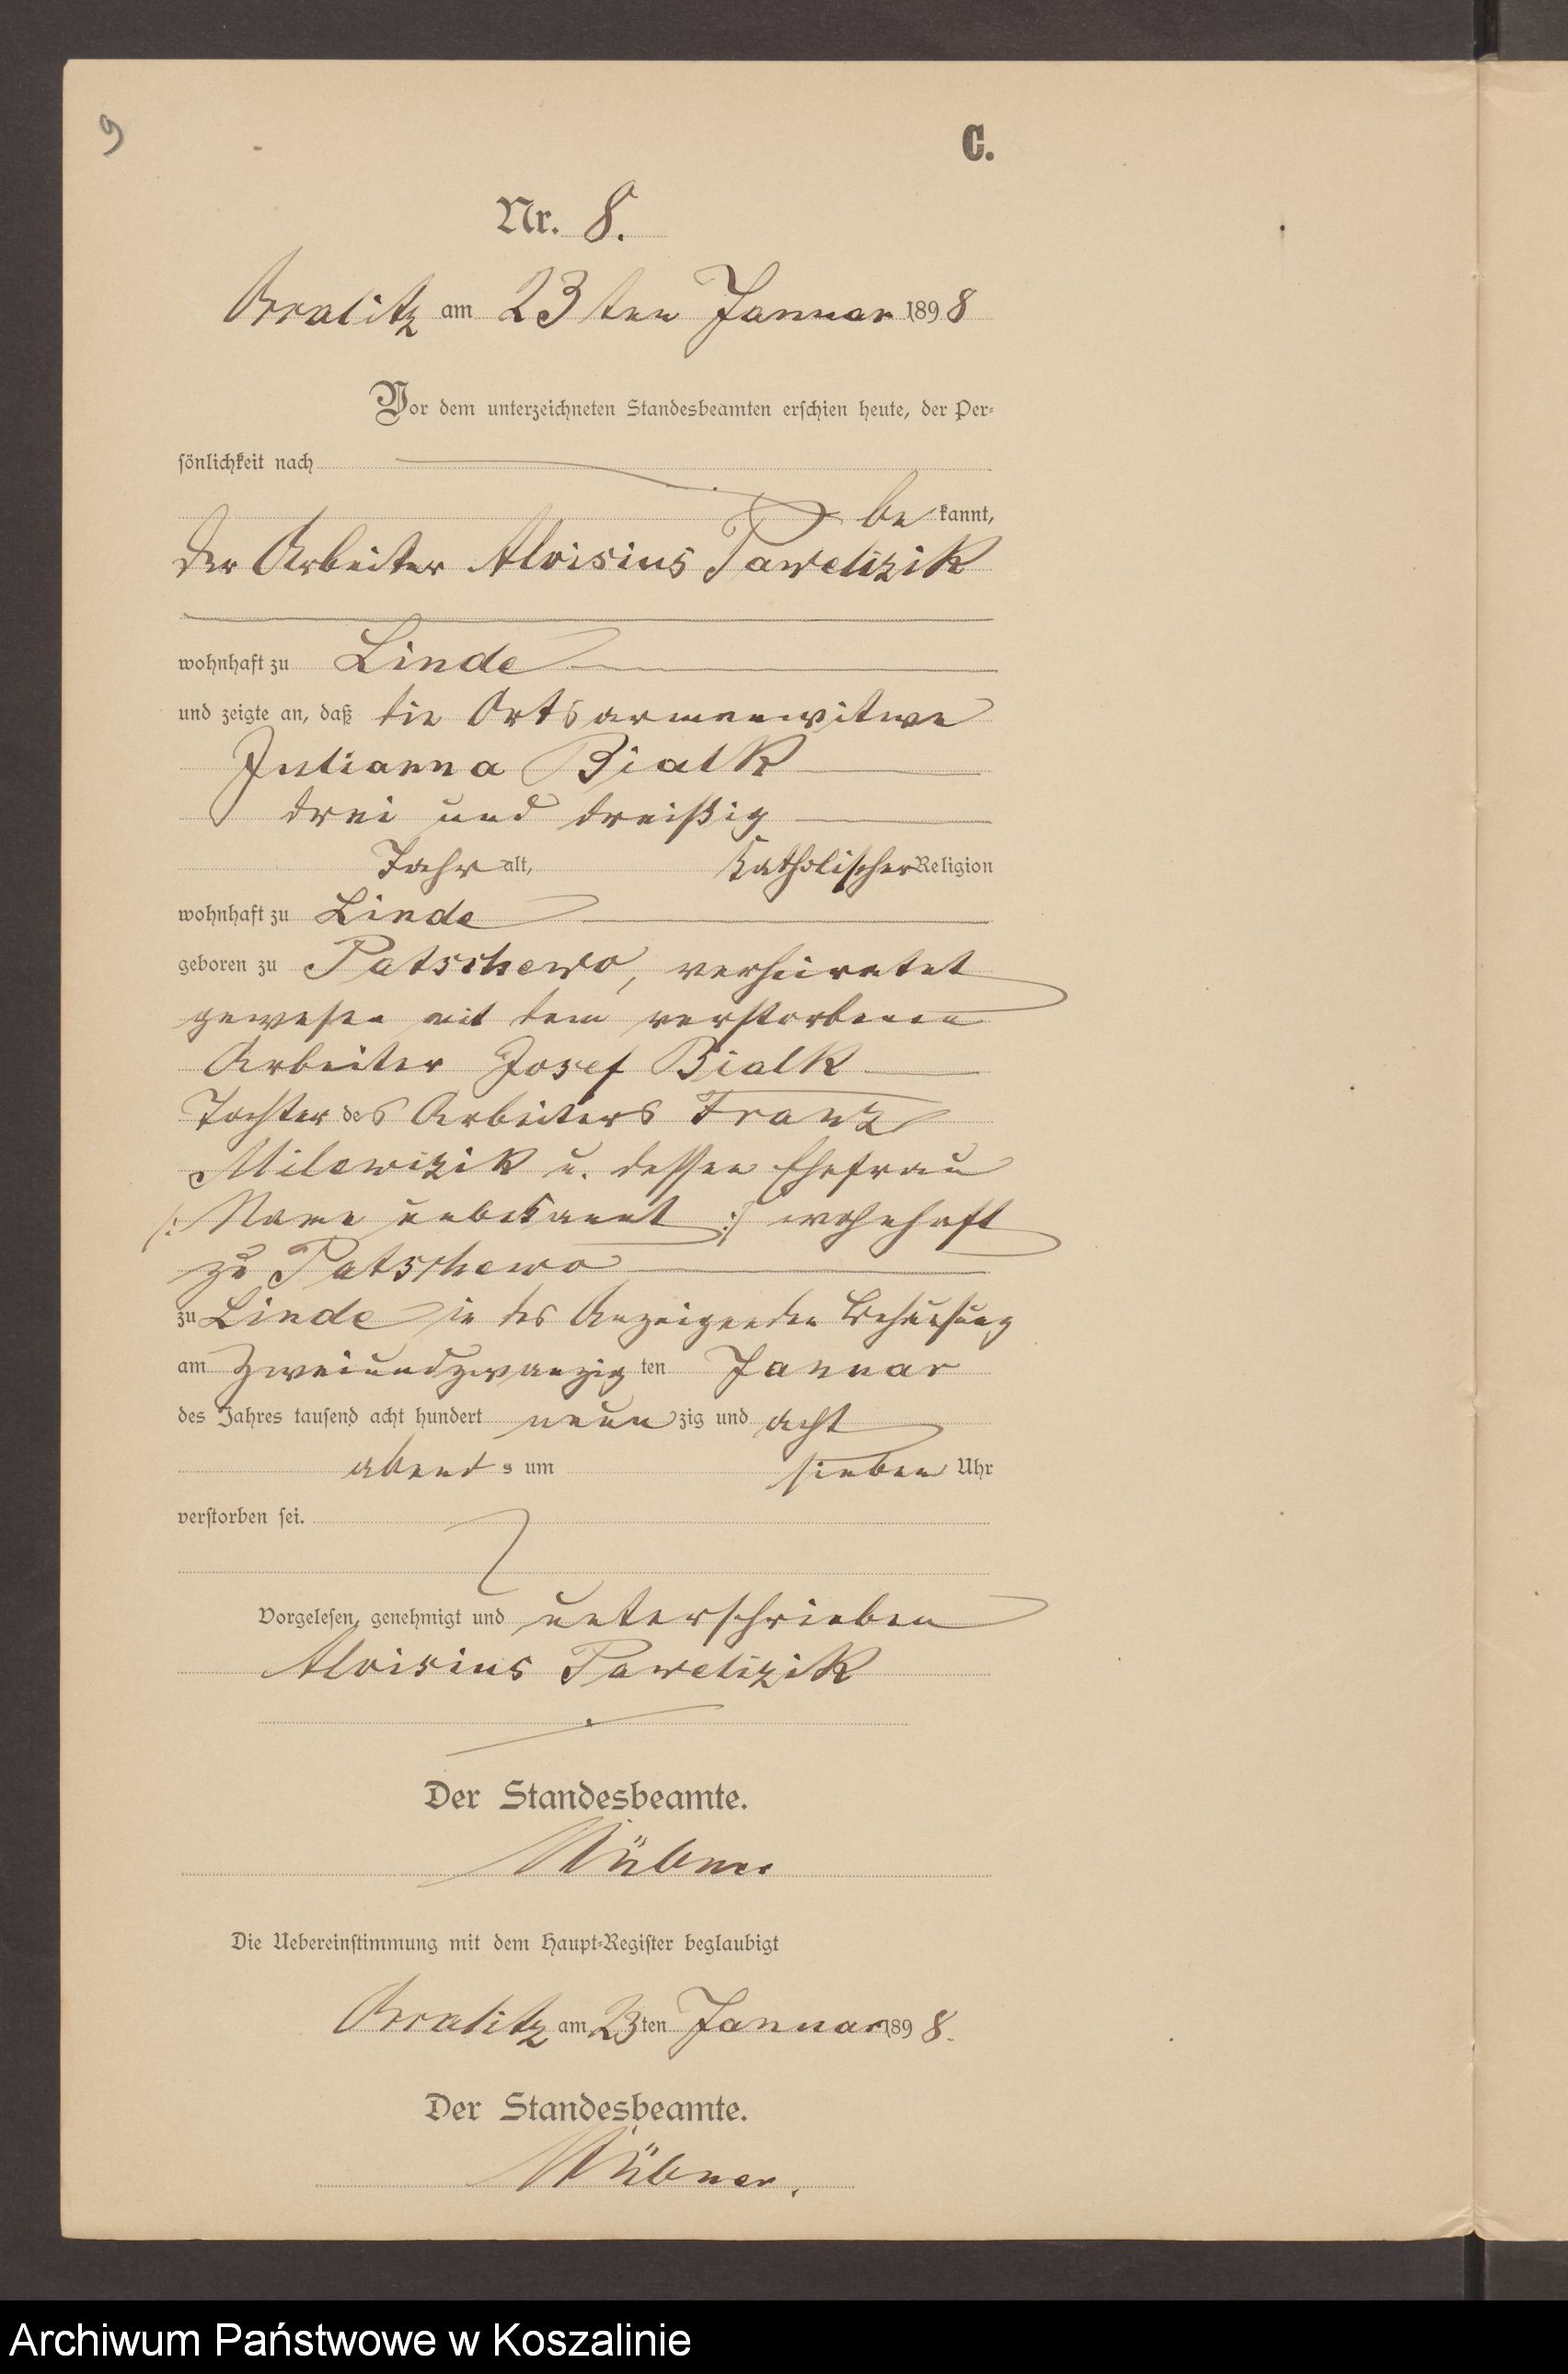 9
C.
Nr. 8.
Orralitz am 23ten Januar 1898
Vor dem unterzeichneten Standesbeamten erschien heute, der Per-
sönlichkeit nach
be kannt,
der Arbeiter Aloisius Pawelizik
wohnhaft zu Linde
und zeigte an, daß die Ortsarmenwitwe
Julianna Bialk
drei und dreißig
Jahr alt, katholischer Religion
wohnhaft zu Linde
geboren zu Patschewo, verheiratet
gewesen mit dem verstorbenen
Arbeiter Josef Bialk
Tochter des Arbeiters Franz
Milewizik u. dessen Ehefrau
/: Name unbekannt :/ wohnhaft
zu Patschewo
zu Linde in des Anzeigenden Behausung
am zweiundzwanzig ten Januar
des Jahres tausend acht hundert neun zig und acht
abend s um sieben Uhr
verstorben sei.
Vorgelesen, genehmigt und unterschrieben
Aloisius Pawelizik
Der Standesbeamte.
Die Uebereinstimmung mit dem Haupt-Register beglaubigt
Orralitz am 23ten Januar 1898.
Der Standesbeamte.
Archiwum Państwowe w Koszalinie